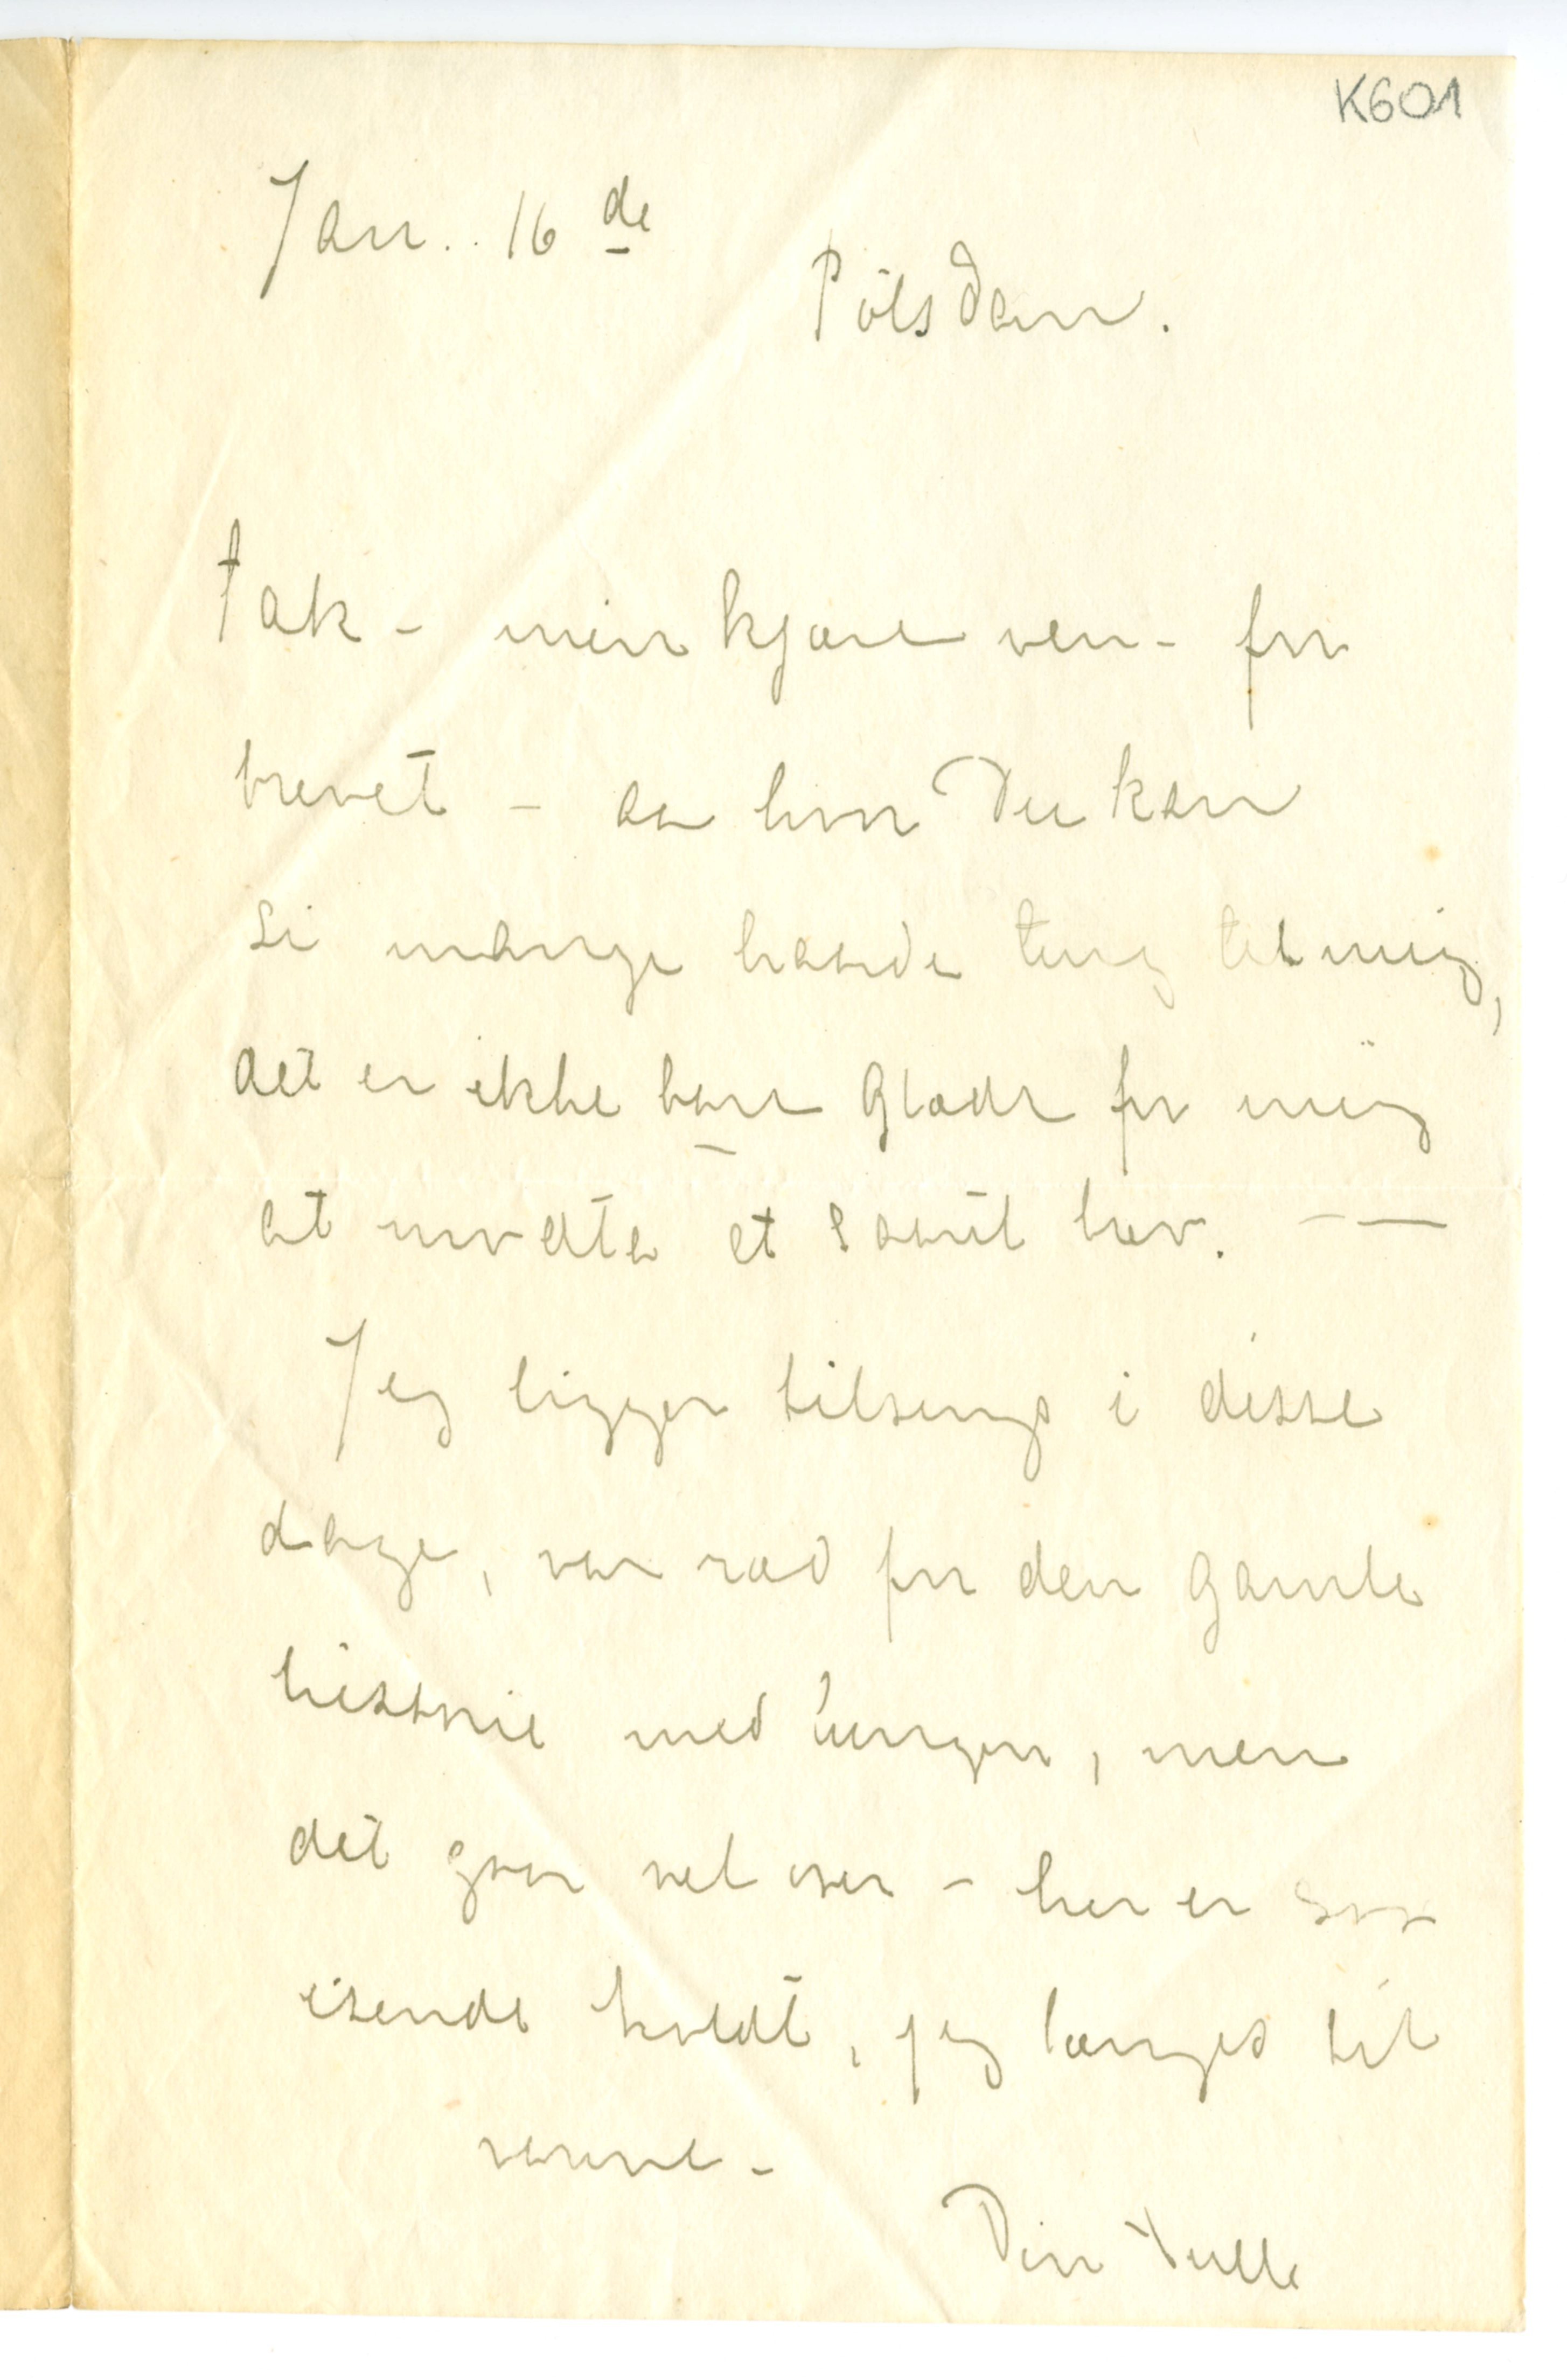 K601
Jan.. 16 de
Potsdam.
Tak - min kjære ven - for
brevet - aa hvor Du kan
si mange haarde ting til mig,
det er ikke bare Glæde for mig
at motta et saant brev. - —
Jeg ligger tilsengs i disse
dage, var ræd for den Gamle
historie med lungen, men
det gaar vel over - her er saa
isende koldt, jeg længes til
varme -
Din Tulle